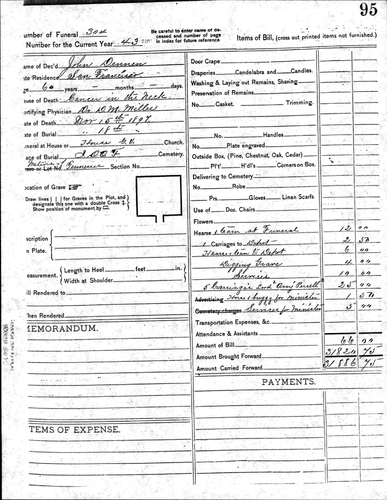 95
Number of Funeral 302
Be carefully to enter name of deceased and number of page in index for future reference
Number for the Current Year 43
Items of Bill, (cross out printed items not furnished.)
Name of Dec'd John Dennen
Residence San Francisco
60 years - months - days.
Cause of Death Cancer in the Neck
Certifying Physician Dr D.M. Miller
of Death Nov 15th 1897
of Burial " 18th "
Funeral at House or Church.
Place of Burial I.O.O.F. Cemetery.
or Lot No. Section No.
Location of Grave
Draw lines for Graves in the Plot, and designate this one with a double Cross
Show position of monument by
Measurement, Length to Heel feet in.
Width at Shoulder
Bill Rendered to
When Rendered
MEMORANDUM.
ITEMS OF EXPENSE.
Door Crape
Draperies Candelabra and Candles.
Washing & Laying out Remains, Shaving
Preservation of Remains
No. Casket. Trimming.
No. Handles
Plate engraved
Outside Box (Pine, Chestnut, Oak, Cedar)
P'lt's H'dl's Corners on Box.
Delivering to Cemetery
No. Robe
Prs. Gloves Linen Scarfs
Use of Doz. Chairs
Flowers
Hearse 1 team at Funeral 12 00
1 Carriages to Depot 2 50
Hearse team to Depot 6 00
Digging Grave 4 00
Services 10 00
5 Carriages 25 00
Advertising Horse & buggy for Minister 1 50
Cemetery charges Services for Minister 5 00
Transportation Expenses, &c
Attendance & Assistants
Amount of Bill 66 00
Amount Brought Forward 31820 75
Amount Carried Forward 31886 75
PAYMENTS.